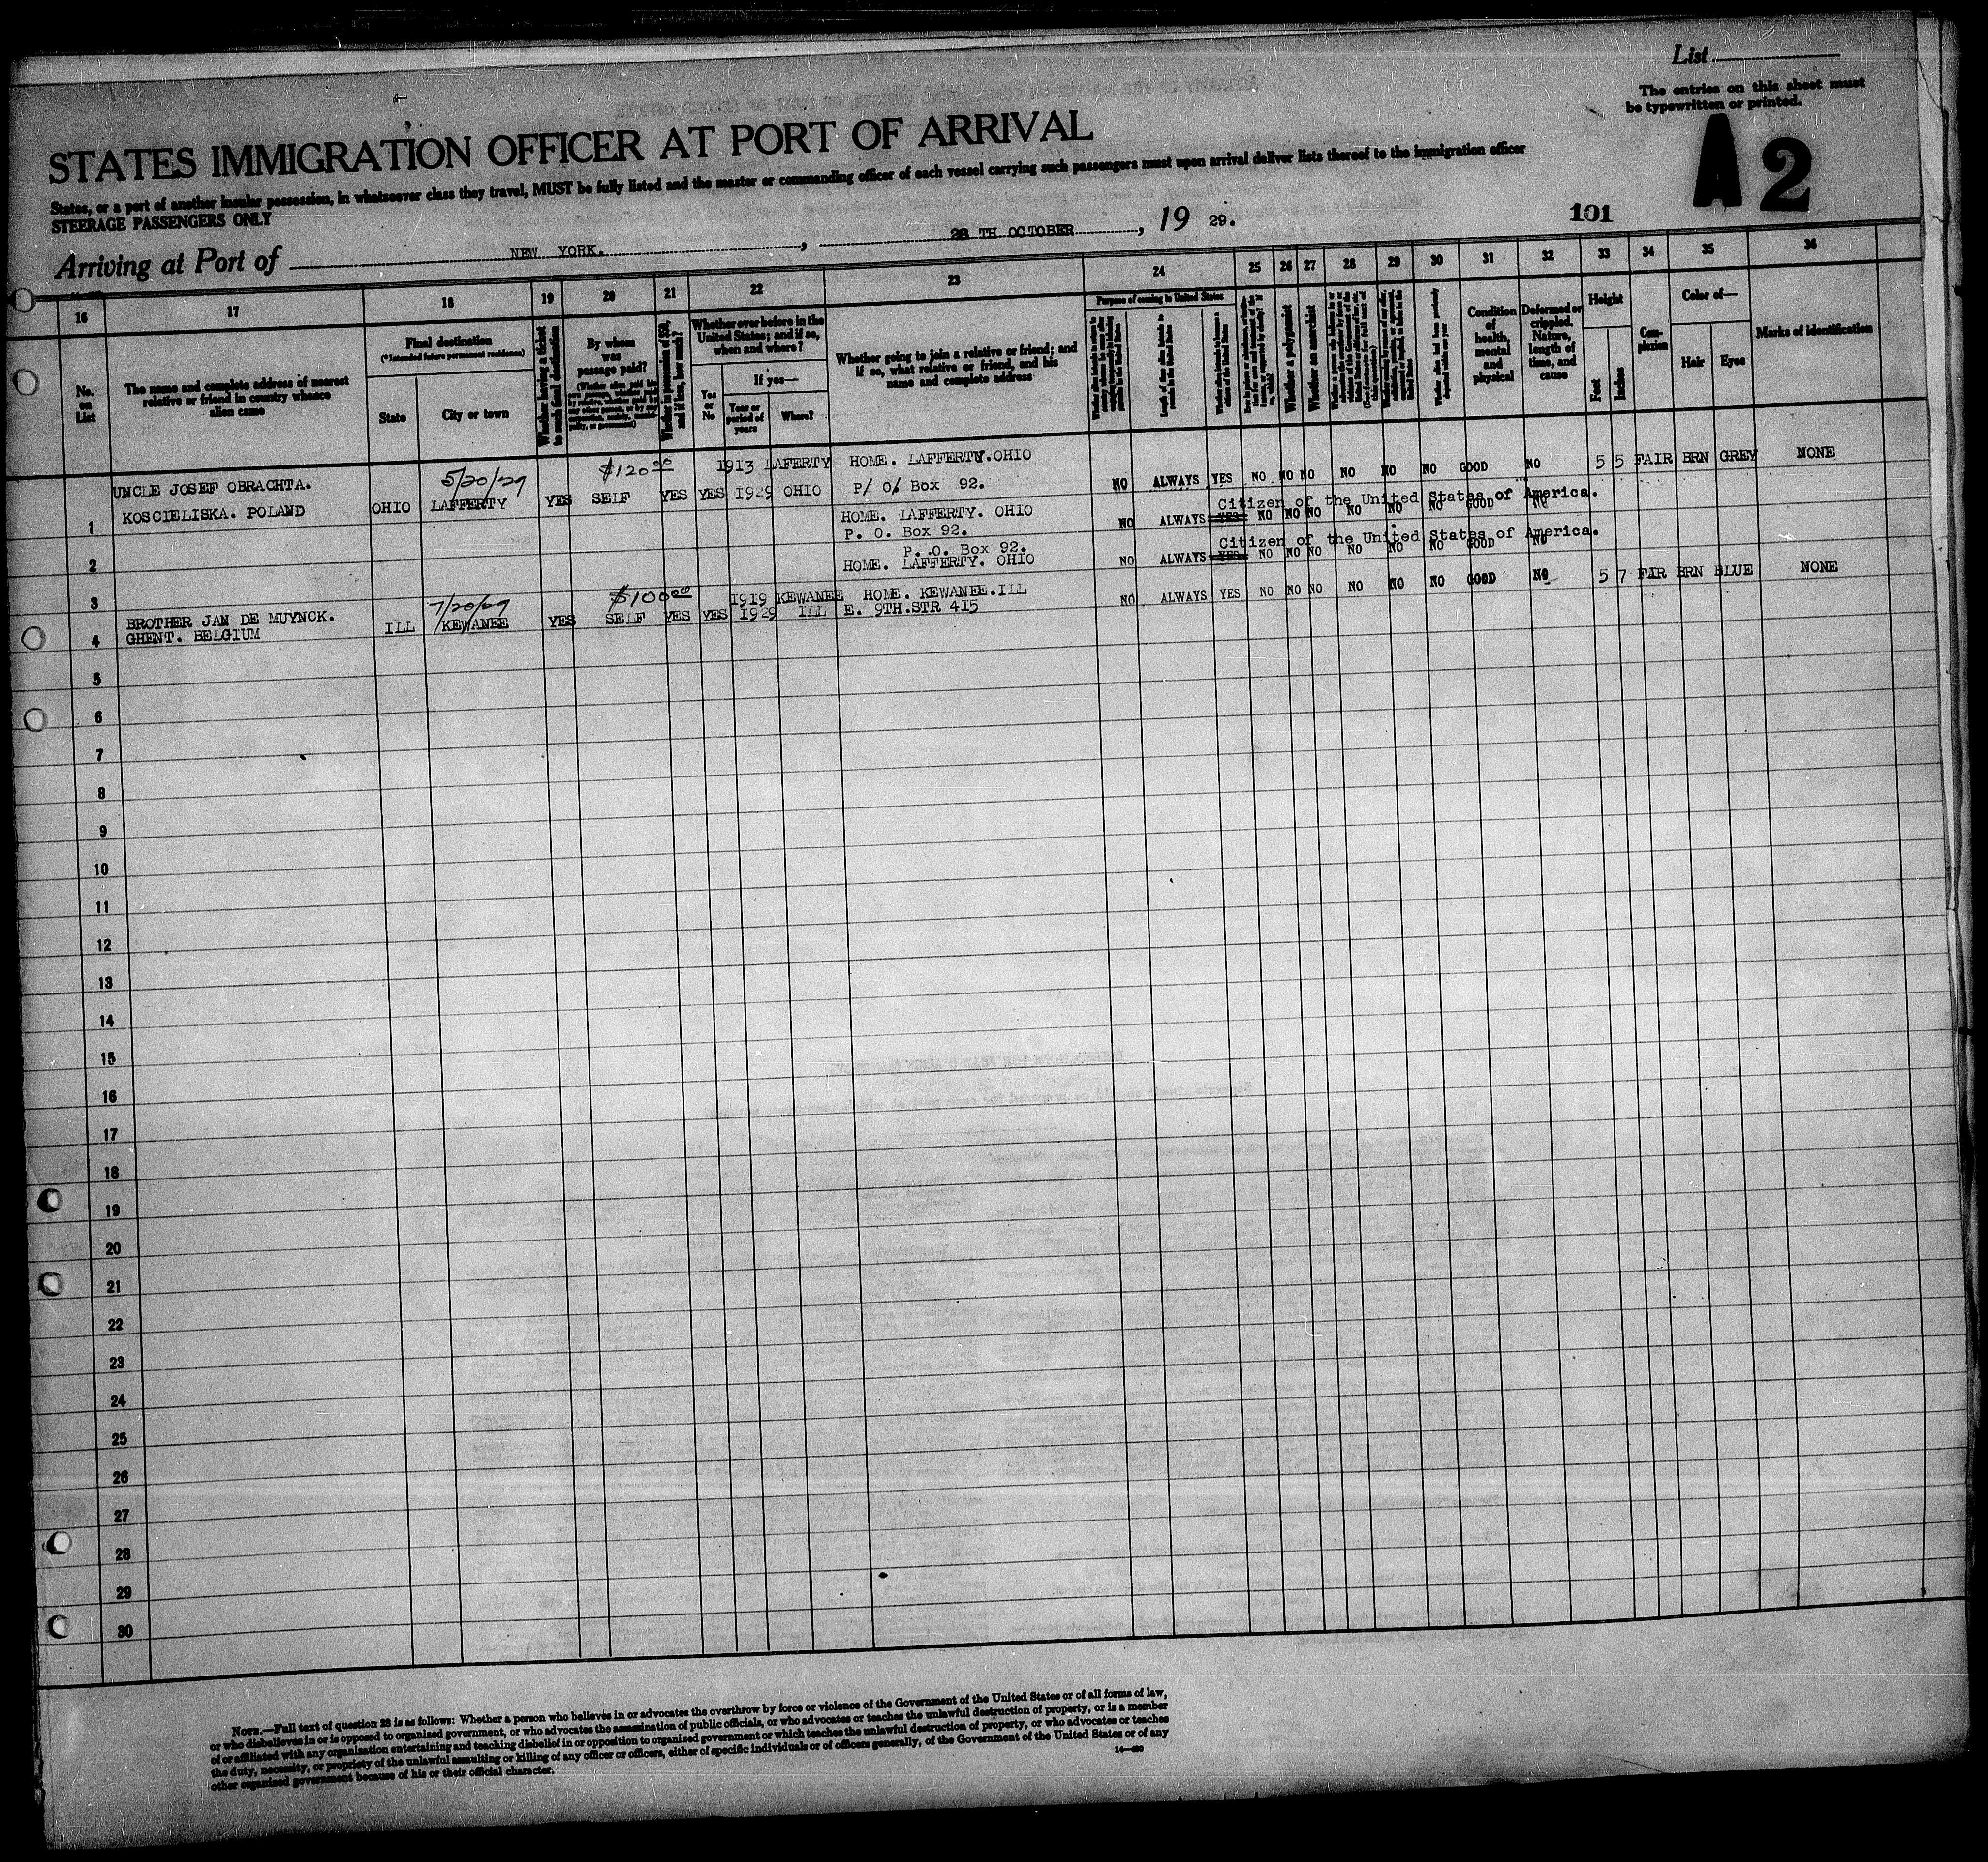 List
The entries on this sheet must
be typewritten or printed.
A 2
STATES IMMIGRATION OFFICER AT PORT OF ARRIVAL
States, or a part of another insular possession, in whatsoever class they travel, MUST be fully listed and the master or commanding officer of each vessel carrying such passengers must upon arrival deliver lists thereof to the immigration officer
STEERAGE PASSENGERS ONLY
101
Arriving at Port of NEW YORK. , 28 TH OCTOBER , 19 29.
16 17 18 19 20 21 22 23 24 25 26 27 28 29 30 31 32 33 34 35 36
No. on List
The name and complete address of nearest relative or friend in country whence alien came
Final destination
(*Intended future permanent residence)
State
City or town
Whether having a ticket to such final destination
By whom was passage paid?
Whether in possession of $50, and if less, how much?
Whether ever before in the United States; and if so, when and where?
Yes or No
If yes—
Year or period of years
Where?
Whether going to join a relative or friend; and if so, what relative or friend, and his name and complete address
Purpose of coming to United States
Whether a polygamist
Whether an anarchist
Condition of health, mental and physical
Deformed or crippled. Nature, length of time, and cause
Height
Feet
Inches
Complexion
Color of—
Hair
Eyes
Marks of identification
5/20/29 $120.00 1913 LAFERTY HOME. LAFFERTY.OHIO
UNCLE JOSEF OBRACHTA.
1 KOSCIELISKA. POLAND OHIO LAFFERTY YES SELF YES YES 1929 OHIO P/ O/ Box 92. NO ALWAYS YES NO NO NO NO NO NO GOOD NO 5 5 FAIR BRN GREY NONE
Citizen of the United States of America.
2 HOME. LAFFERTY. OHIO NO ALWAYS YES NO NO NO NO NO NO GOOD NO
P. O. Box 92.
Citizen of the United States of America.
3 P. O. Box 92. NO ALWAYS YES NO NO NO NO NO NO GOOD NO
HOME. LAFFERTY. OHIO
7/20/29 $100.00 1919 KEWANEE HOME. KEWANEE.ILL
BROTHER JAN DE MUYNCK.
4 GHENT. BELGIUM ILL KEWANEE YES SELF YES YES 1929 ILL E. 9TH.STR 415 NO ALWAYS YES NO NO NO NO NO NO GOOD NO 5 7 FAIR BRN BLUE NONE
5
6
7
8
9
10
11
12
13
14
15
16
17
18
19
20
21
22
23
24
25
26
27
28
29
30
NOTE.—Full text of question 28 is as follows: Whether a person who believes in or advocates the overthrow by force or violence of the Government of the United States or of all forms of law,
or who disbelieves in or is opposed to organized government, or who advocates the assassination of public officials, or who advocates or teaches the unlawful destruction of property, or is a member
of or affiliated with any organization entertaining and teaching disbelief in or opposition to organized government or which teaches the unlawful destruction of property, or who advocates or teaches
the duty, necessity, or propriety of the unlawful assaulting or killing of any officer or officers, either of specific individuals or of officers generally, of the Government of the United States or of any
other organized government because of his or their official character.